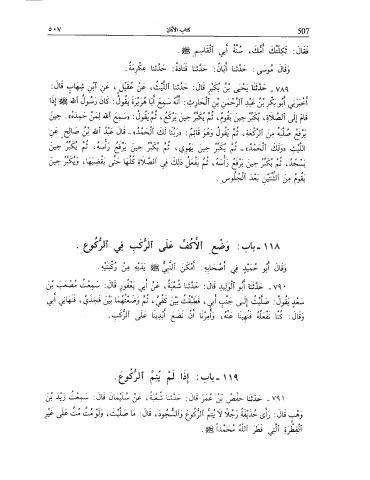 ٥٠٧ كتاب الأذان 507
فَقَالَ: ثَكِلَتْكَ أُمُّكَ، سُنَّةُ أَبِي الْقَاسِمِ ﷺ.
وَقَالَ مُوسَى: حَدَّثَنَا أَبَانُ: حَدَّثَنَا قَتَادَةُ: حَدَّثَنَا عِكْرِمَةُ.
٧٨٩ - حَدَّثَنَا يَحْيَى بْنُ بُكَيْرٍ قَالَ: حَدَّثَنَا اللَّيْثُ، عَنْ عُقَيْلٍ، عَنِ ابْنِ شِهَابٍ قَالَ:
أَخْبَرَنِي أَبُو بَكْرِ بْنُ عَبْدِ الرَّحْمَنِ بْنِ الْحَارِثِ: أَنَّهُ سَمِعَ أَبَا هُرَيْرَةَ يَقُولُ: كَانَ رَسُولُ اللهِ ﷺ إِذَا
قَامَ إِلَى الصَّلَاةِ، يُكَبِّرُ حِينَ يَقُومُ، ثُمَّ يُكَبِّرُ حِينَ يَرْكَعُ، ثُمَّ يَقُولُ: «سَمِعَ اللهُ لِمَنْ حَمِدَهُ». حِينَ
يَرْفَعُ صُلْبَهُ مِنَ الرَّكْعَةِ، ثُمَّ يَقُولُ وَهُوَ قَائِمٌ: «رَبَّنَا لَكَ الْحَمْدُ». قَالَ عَبْدُ اللهِ بْنُ صَالِحٍ عَنِ
اللَّيْثِ «وَلَكَ الْحَمْدُ» ثُمَّ يُكَبِّرُ حِينَ يَهْوِي، ثُمَّ يُكَبِّرُ حِينَ يَرْفَعُ رَأْسَهُ، ثُمَّ يُكَبِّرُ حِينَ
يَسْجُدُ، ثُمَّ يُكَبِّرُ حِينَ يَرْفَعُ رَأْسَهُ، ثُمَّ يَفْعَلُ ذَلِكَ فِي الصَّلَاةِ كُلِّهَا حَتَّى يَقْضِيَهَا، وَيُكَبِّرُ حِينَ
يَقُومُ مِنَ الثِّنْتَيْنِ بَعْدَ الْجُلُوسِ.
١١٨ - باب: وَضْعِ الْأَكُفِّ عَلَى الرُّكَبِ فِي الرُّكُوعِ.
وَقَالَ أَبُو حُمَيْدٍ فِي أَصْحَابِهِ: أَمْكَنَ النَّبِيُّ ﷺ يَدَيْهِ مِنْ رُكْبَتَيْهِ.
٧٩٠ - حَدَّثَنَا أَبُو الْوَلِيدِ قَالَ: حَدَّثَنَا شُعْبَةُ، عَنْ أَبِي يَعْفُورٍ قَالَ: سَمِعْتُ مُصْعَبَ بْنَ
سَعْدٍ يَقُولُ: صَلَّيْتُ إِلَى جَنْبِ أَبِي، فَطَبَّقْتُ بَيْنَ كَفَّيَّ، ثُمَّ وَضَعْتُهُمَا بَيْنَ فَخِذَيَّ، فَنَهَانِي أَبِي
وَقَالَ: كُنَّا نَفْعَلُهُ فَنُهِينَا عَنْهُ، وَأُمِرْنَا أَنْ نَضَعَ أَيْدِيَنَا عَلَى الرُّكَبِ.
١١٩ - باب: إِذَا لَمْ يُتِمَّ الرُّكُوعَ.
٧٩١ - حَدَّثَنَا حَفْصُ بْنُ عُمَرَ قَالَ: حَدَّثَنَا شُعْبَةُ، عَنْ سُلَيْمَانَ قَالَ: سَمِعْتُ زَيْدَ بْنَ
وَهْبٍ قَالَ: رَأَى حُذَيْفَةُ رَجُلًا لَا يُتِمُّ الرُّكُوعَ وَالسُّجُودَ، قَالَ: مَا صَلَّيْتَ، وَلَوْ مُتَّ مُتَّ عَلَى غَيْرِ
الْفِطْرَةِ الَّتِي فَطَرَ اللهُ مُحَمَّدًا ﷺ.